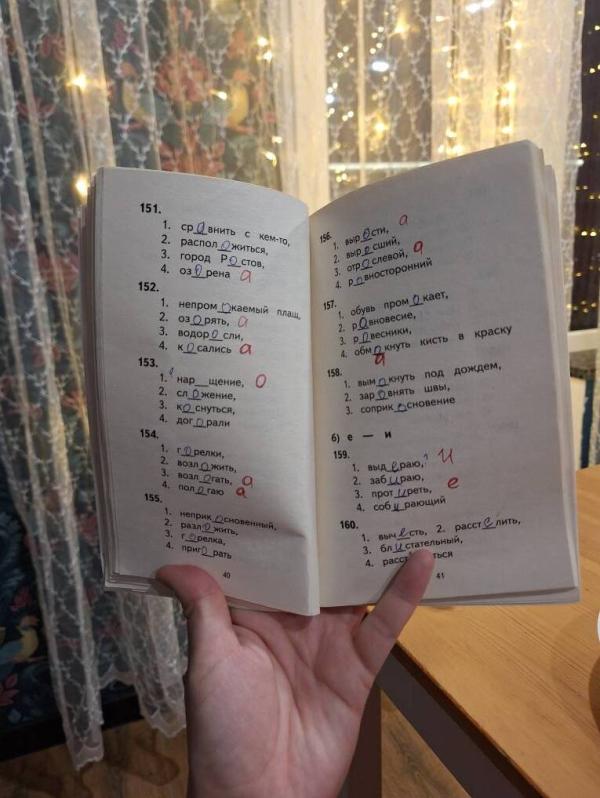 151.
1. ср а внить с кем-то,
2. распол о житься,
3. город Р о стов,
4. оз о рена а
152.
1. непром о каемый плащ,
2. оз о рять, а
3. водор о сли,
4. к о сались а
153.
1. нар__щение, о
2. сл о жение,
3. к о снуться,
4. дог о рали
154.
1. г о релки,
2. возл о жить,
3. возл о гать, а
4. пол о гаю а
155.
1. неприк о сновенный,
2. разл о жить,
3. г о релка,
4. приг о рать
40
156.
1. выр о сти, а
2. выр о сший,
3. отр о слевой, а
4. р о вносторонний
157.
1. обувь пром о кает,
2. р а вновесие,
3. р о весники,
4. обм о кнуть кисть в краску
а
158.
1. вым о кнуть под дождем,
2. зар о внять швы,
3. соприк о сновение
б) е — и
159.
1. выд е раю, и
2. заб и раю,
3. прот и реть, е
4. соб и рающий
160.
1. выч е сть, 2. расст е лить,
3. бл и стательный,
4.
41